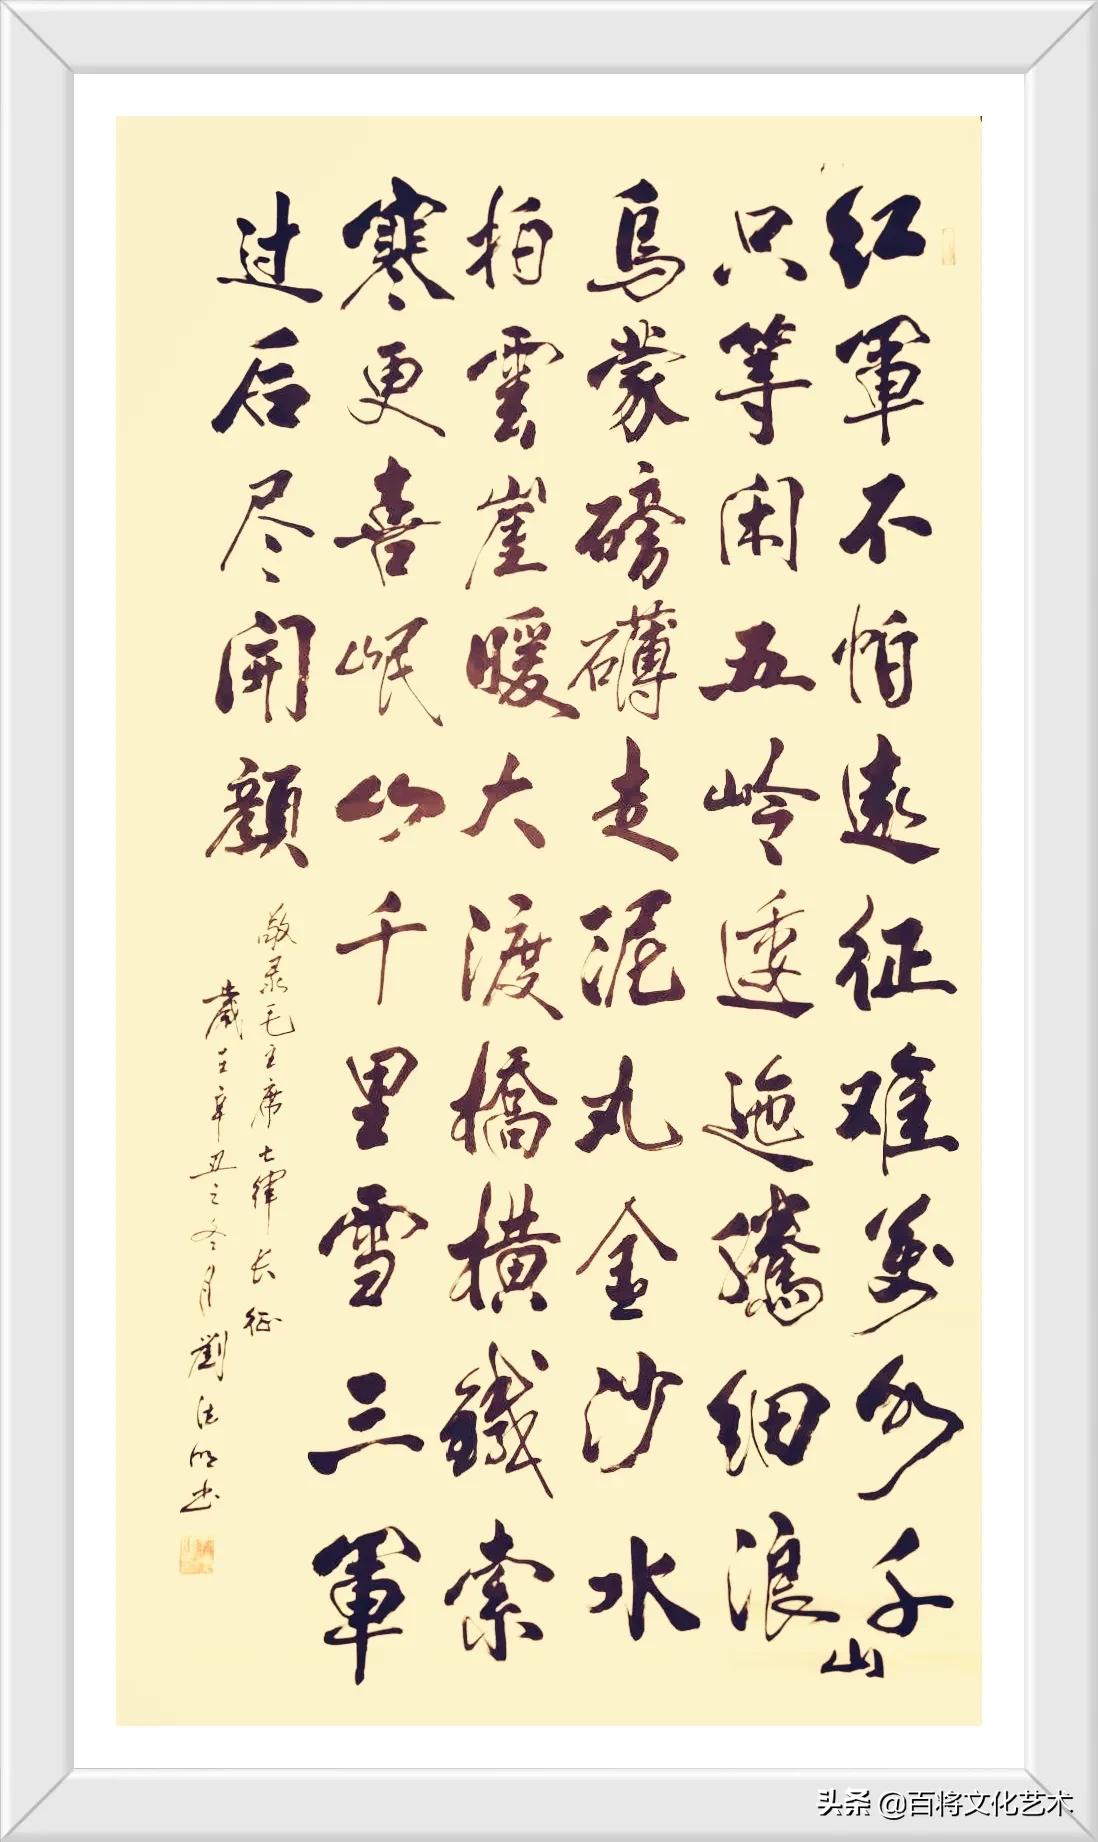 红軍不怕遠征难萬水千山
只等闲五岭逶迤騰细浪
烏蒙磅礴走泥丸金沙水
拍雲崖暖大渡橋横鐵索
寒更喜岷山千里雪三軍
过后尽開顔
敬录毛主席七律长征
歲在辛丑之冬月劉法明书
头条 @百将文化艺术